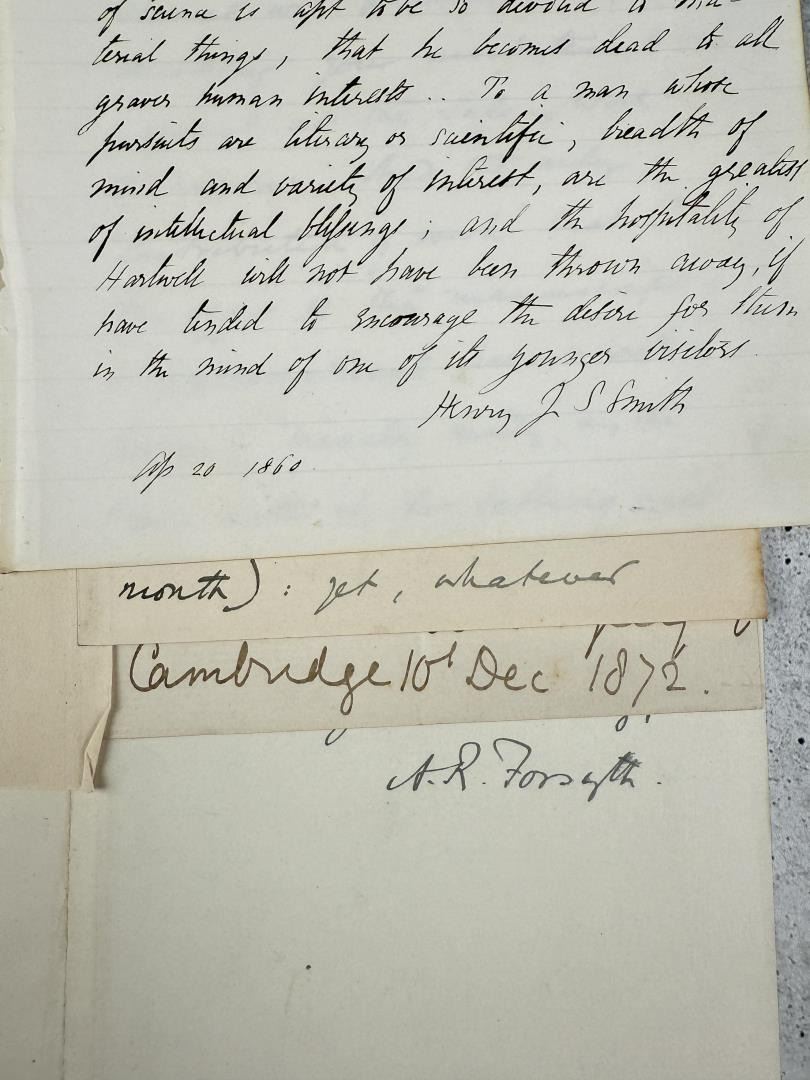 of science is apt to be so devoted to ma-
terial things, that he becomes dead to all
graver human interests .. To a man whose
pursuits are literary or scientific, breadth of
mind and variety of interest, are the greatest
of intellectual blessings ; and the hospitality of
Hartwell will not have been thrown away, if
have tended to encourage the desire for them
in the mind of one of its younger visitors.
Henry J S Smith
Ap 20 1860.
month) : yet, whatever
Cambridge 10t Dec 1872.
A. R. Forsyth.